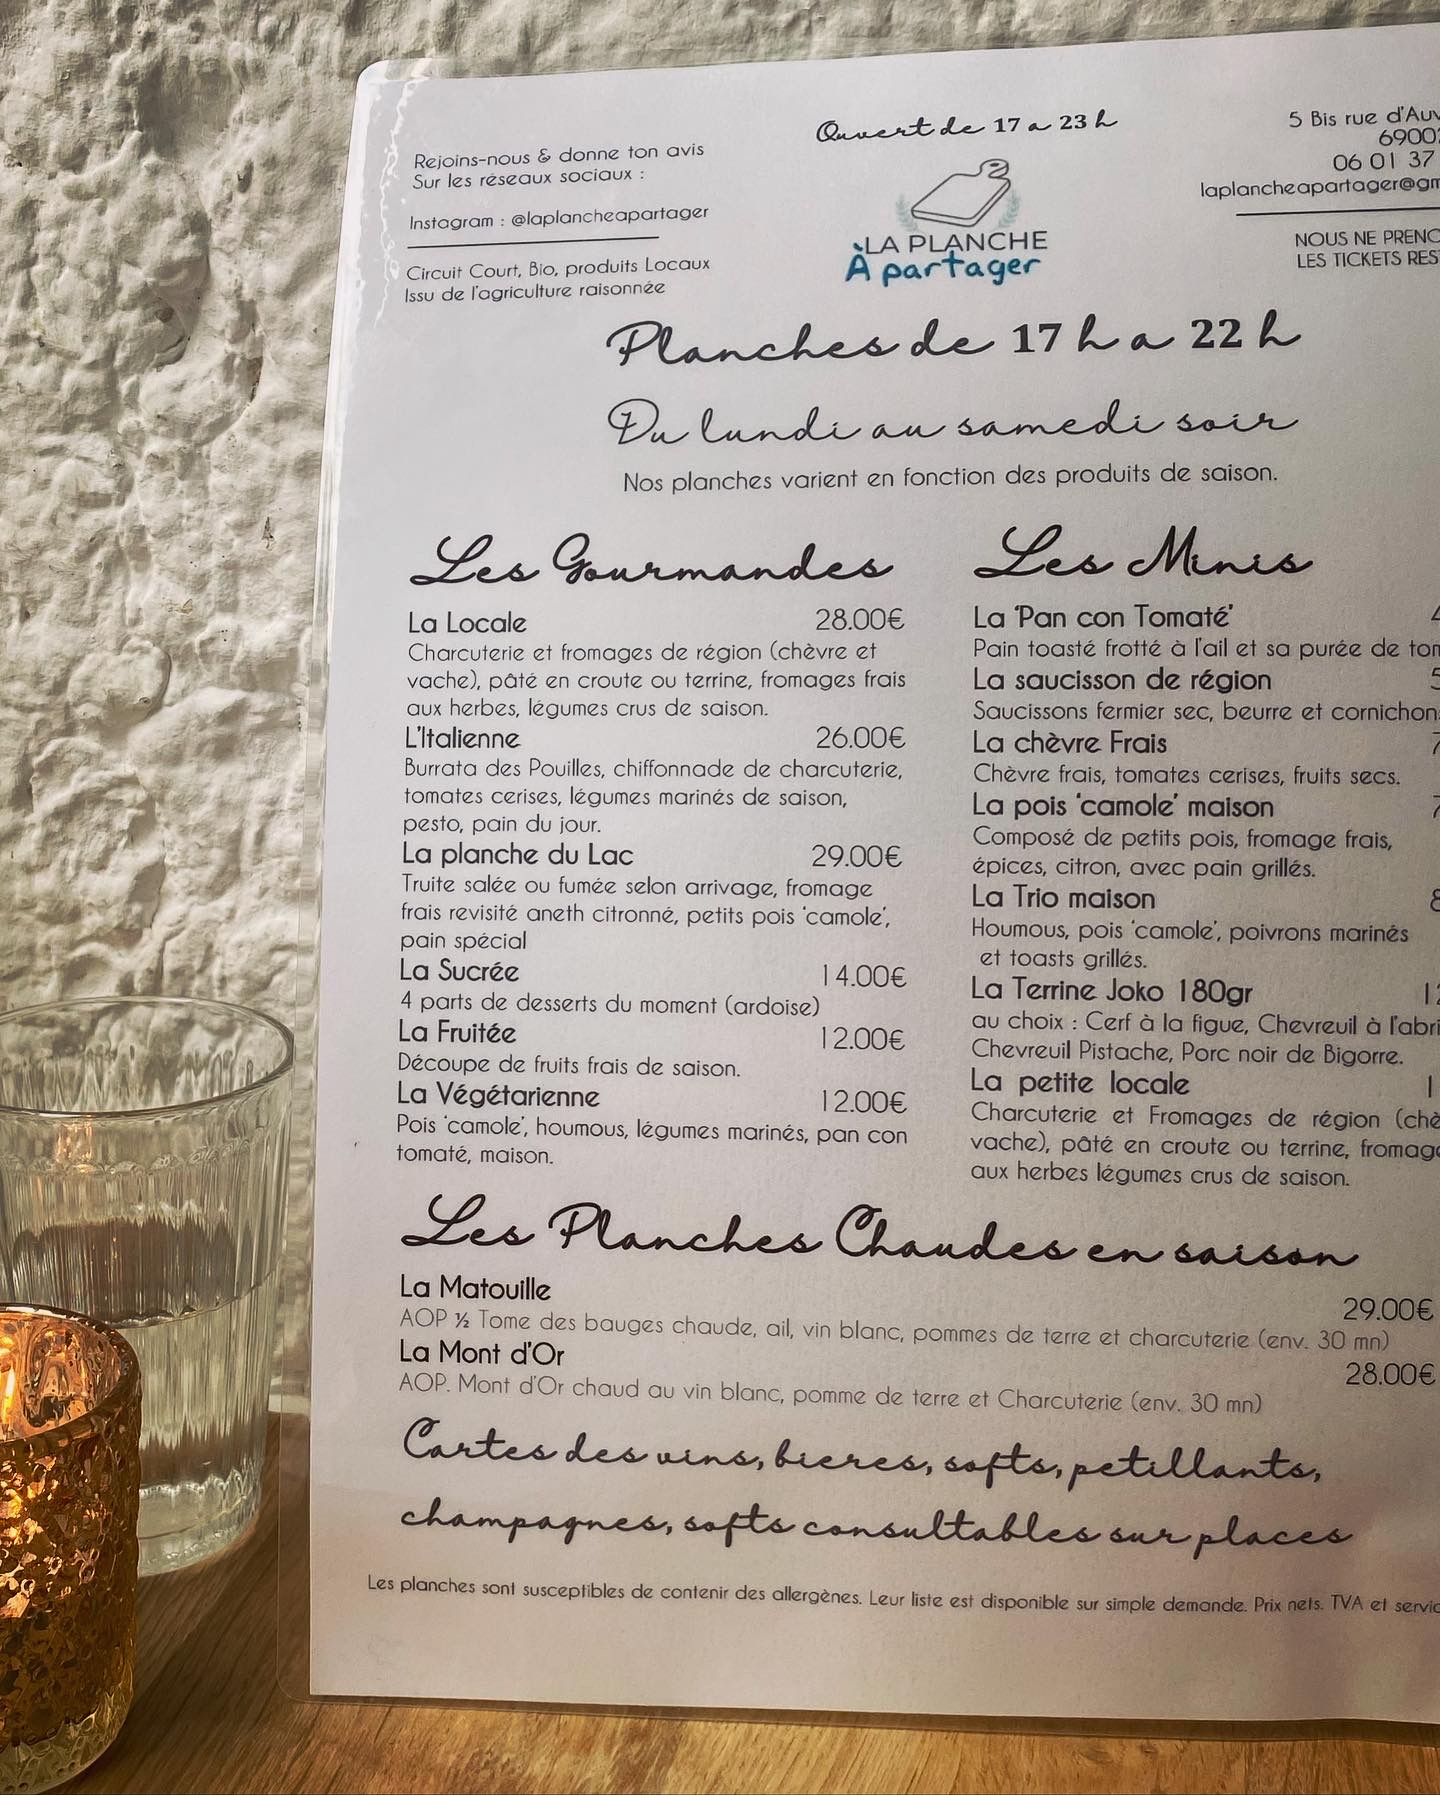 Rejoins-nous & donne ton avis
Sur les réseaux sociaux :
Instagram : @laplancheapartager
Circuit Court, Bio, produits Locaux
Issu de l'agriculture raisonnée
Ouvert de 17 a 23 h
LA PLANCHE
À partager
5 Bis rue
06 01 37
NOUS NE
LES TICKETS
Planches de 17 h a 22 h
Du lundi au samedi soir
Nos planches varient en fonction des produits de saison.
Les Gourmandes
La Locale 28.00€
Charcuterie et fromages de région (chèvre et
vache), pâté en croute ou terrine, fromages frais
aux herbes, légumes crus de saison.
L'Italienne 26.00€
Burrata des Pouilles, chiffonnade de charcuterie,
tomates cerises, légumes marinés de saison,
pesto, pain du jour.
La planche du Lac 29.00€
Truite salée ou fumée selon arrivage, fromage
frais revisité aneth citronné, petits pois 'camole',
pain spécial
La Sucrée 14.00€
4 parts de desserts du moment (ardoise)
La Fruitée 12.00€
Découpe de fruits frais de saison.
La Végétarienne 12.00€
Pois 'camole', houmous, légumes marinés, pan con
tomaté, maison.
Les Minis
La 'Pan con Tomaté'
Pain toasté frotté à l'ail et sa purée de
La saucisson de région
Saucissons fermier sec, beurre et
La chèvre Frais
Chèvre frais, tomates cerises, fruits secs.
La pois 'camole' maison
Composé de petits pois, fromage frais,
épices, citron, avec pain grillés.
La Trio maison
Houmous, pois 'camole', poivrons marinés
et toasts grillés.
La Terrine Joko 180gr
au choix : Cerf à la figue, Chevreuil à
Chevreuil Pistache, Porc noir de Bigorre.
La petite locale
Charcuterie et Fromages de région
vache), pâté en croute ou terrine,
aux herbes légumes crus de saison.
Les Planches Chaudes en saison
La Matouille 29.00€
AOP ½ Tome des bauges chaude, ail, vin blanc, pommes de terre et charcuterie (env. 30 mn)
La Mont d'Or 28.00€
AOP. Mont d'Or chaud au vin blanc, pomme de terre et Charcuterie (env. 30 mn)
Cartes des vins, bieres, softs, petillants,
champagnes, softs consultables sur places
Les planches sont susceptibles de contenir des allergènes. Leur liste est disponible sur simple demande. Prix nets. TVA et